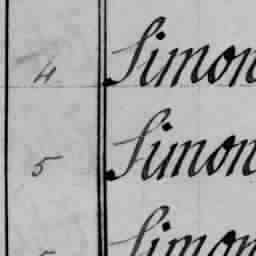 4 Simon
5 Simon
Simon